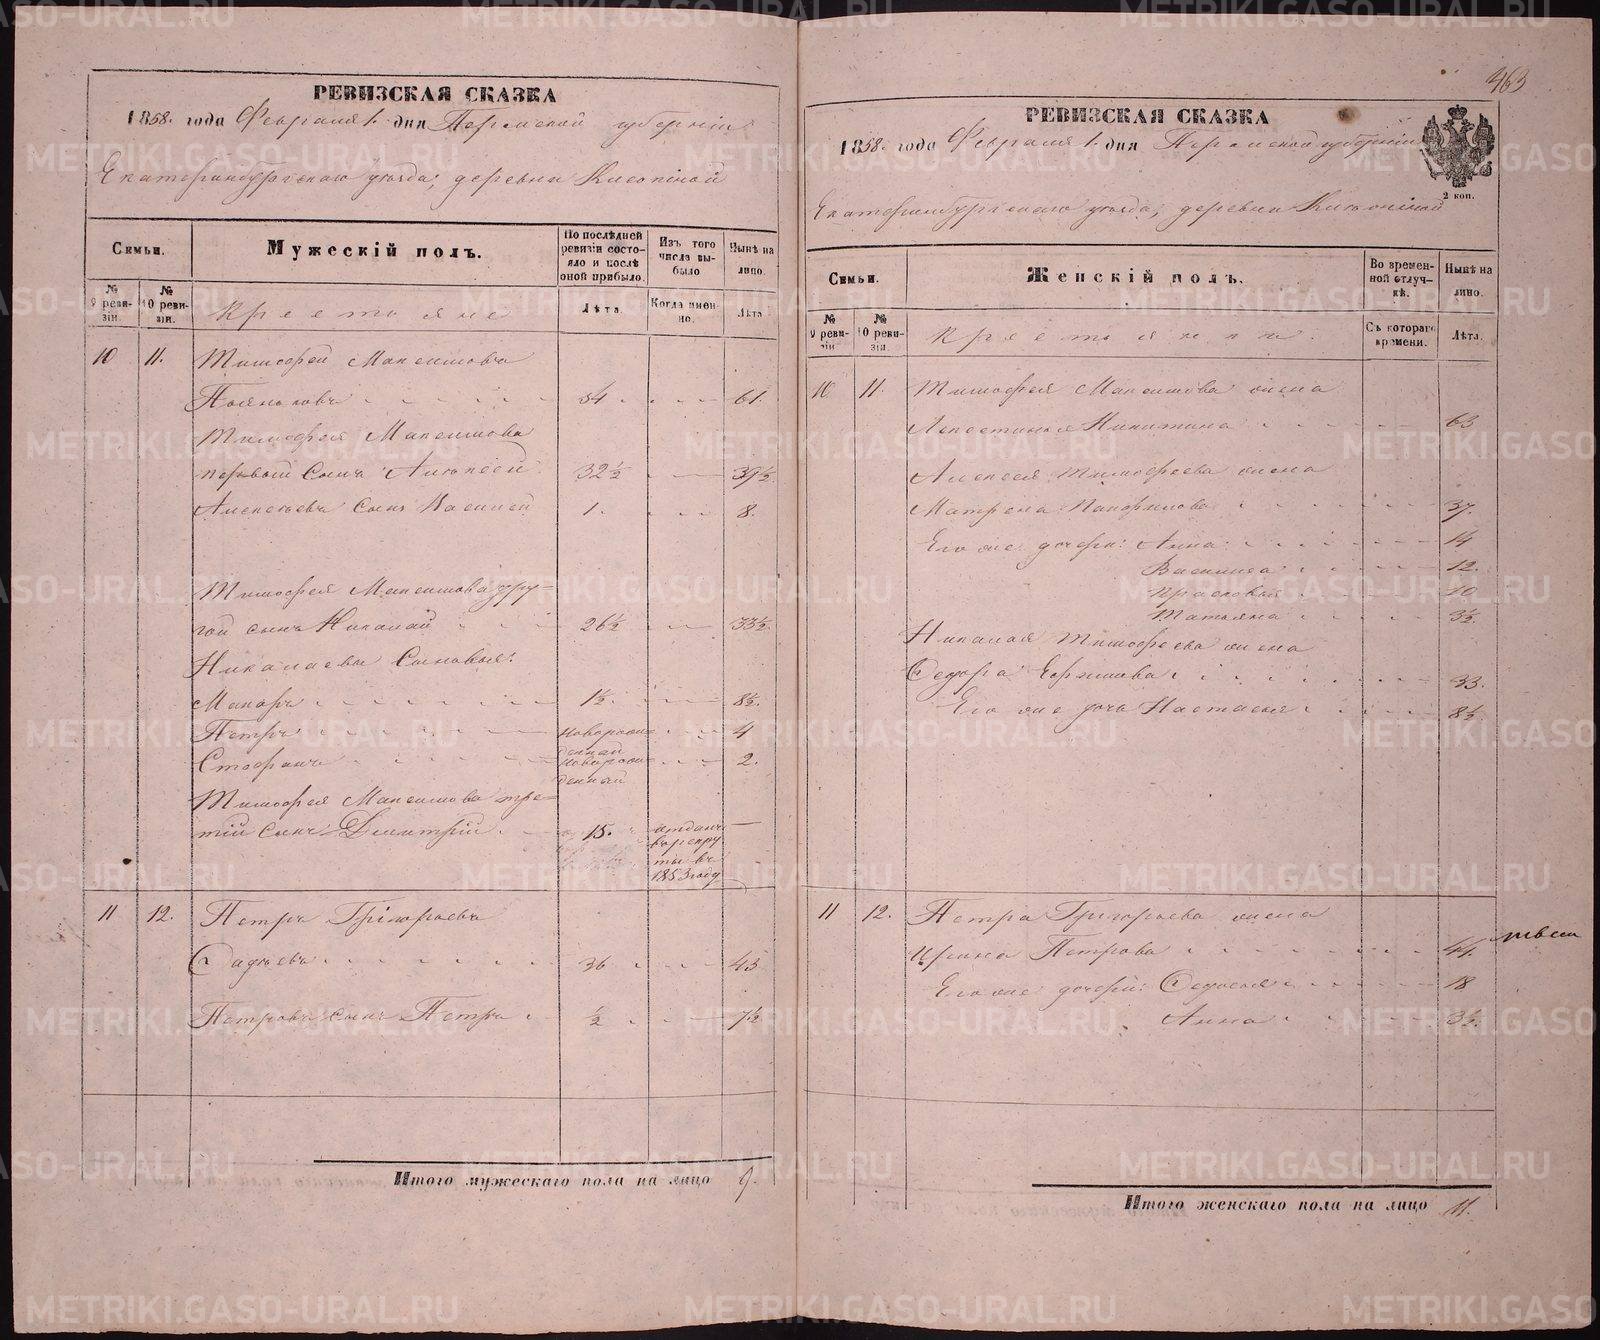 463
РЕВИЗСКАЯ СКАЗКА
1858. года Февраля 1. дня Пермской губернiи
Екатеринбургскаго уѣзда, деревни
Семьи.
Мужескiй полъ.
По послѣдней ревизiи состояло и послѣ оной прибыло.
Изъ того числа выбыло
Нынѣ на лицо.
№ 9 ревизiи.
№ 10 ревизiи.
Крестьяне
Лѣта.
Когда именно.
Лѣта
10 11. Тимофей Максимовъ
Поляковъ 54 61.
Тимофея Максимова
первый сынъ Алексѣй 32½ 39½
Алексѣевъ сынъ Василей 1. 8.
Тимофея Максимова дру-
гой сынъ Николай 26½ 33½
Николаевы сыновья:
Макаръ 1½ 8½.
Петръ новорожденный 4
Стефанъ новорожденный 2.
Тимофея Максимова тре-
тiй сынъ Дмитрiй 15. отданъ
въ рекру
ты въ
1853 году —
11 12. Петръ Григорьевъ
36 43
Петровъ сынъ Петръ ½ 7½
Итого мужескаго пола на лицо 9.
РЕВИЗСКАЯ СКАЗКА
1858. года Февраля 1. дня Пермской губернiи
2 коп.
Екатеринбургскаго уѣзда, деревни
Семьи.
Женскiй полъ.
Во временной отлучкѣ.
Нынѣ на лицо.
№ 9 ревизiи
№ 10 ревизiи.
Крестьянки.
Съ котораго времени.
Лѣта.
10 11. Тимофея Максимова жена
Никитина 63
Алексея Тимофеева жена
Матрена Панфилова 37.
Его же дочери: Анна 14
Василиса 12.
Прасковья 10
Татьяна 3½
Николая Тимофеева жена
Федора Ефимова 33.
Его же дочь Настасья 8½
11 12. Петра Григорьева жена
Ирина Петрова 44.
Его же дочери: Федосья 18
Анна 3½.
Итого женскаго пола на лицо 11.
METRIKI.GASO-URAL.RU